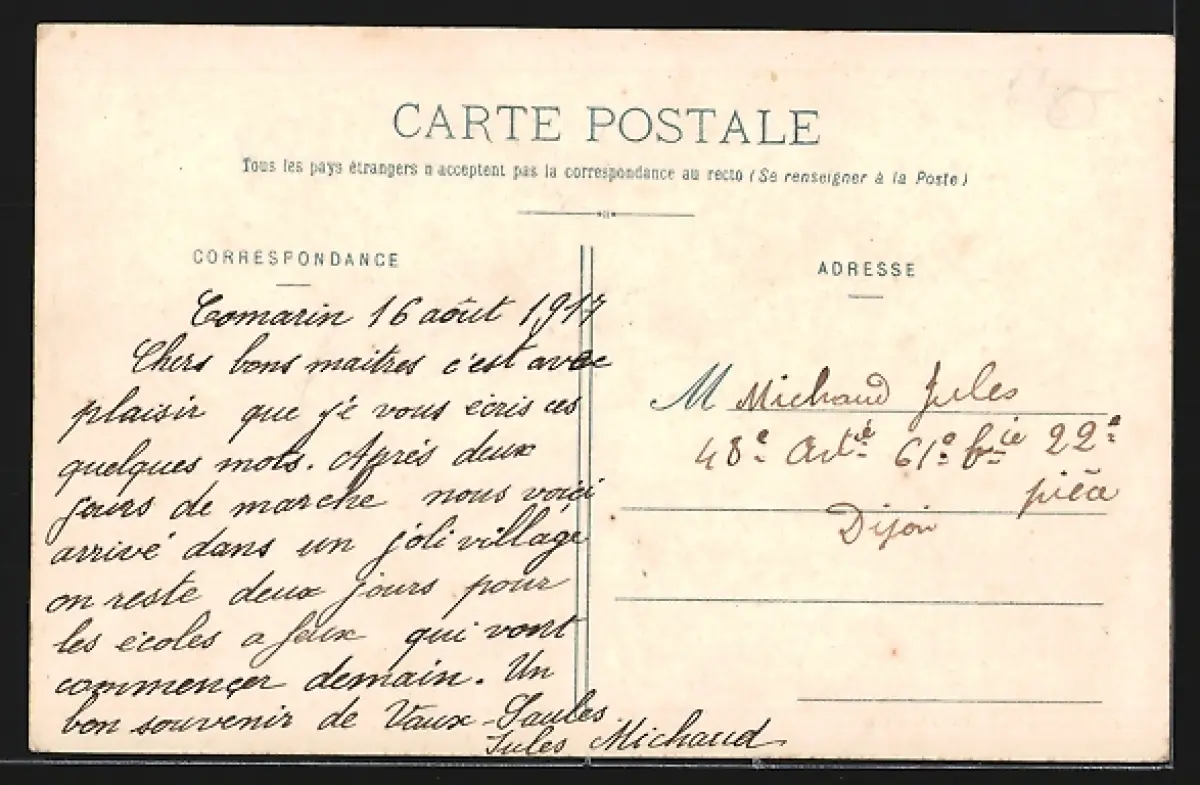 CARTE POSTALE
Tous les pays étrangers n'acceptent pas la correspondance au recto (Se renseigner à la Poste)
CORRESPONDANCE
Comarin 16 août 1917
Chers bons maitres c'est avec
plaisir que je vous écris ces
quelques mots. Après deux
jours de marche nous voici
arrivé dans un joli village
on reste deux jours pour
les écoles a feux qui vont
commençer demain. Un
bon souvenir de Vaux-Saules
Jules Michaud
ADRESSE
M Michaud Jules
48e Artie 61e Bie 22e
pièce
Dijon